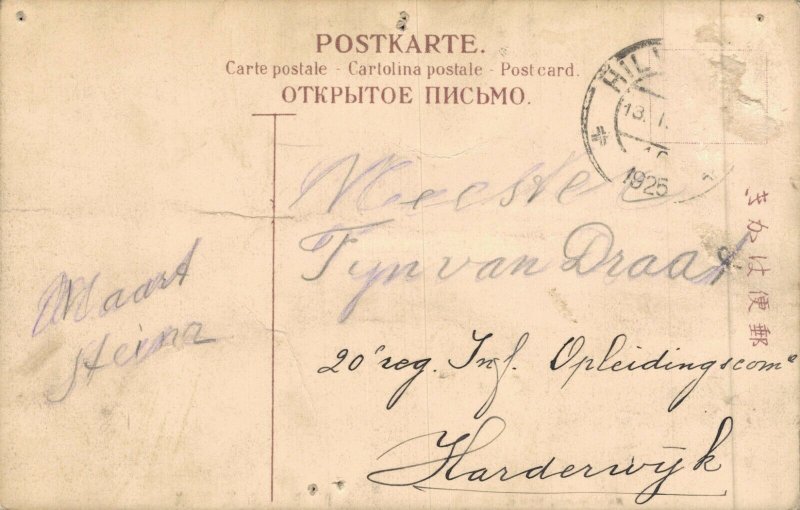 POSTKARTE.
Carte postale - Cartolina postale - Post card.
ОТКРЫТОЕ ПИСЬМО.
HIL
13.
1925
きかは便郵
Meester
Tyn van Draat
Maart
20e reg. Inf. Opleidingscomᵉ
Harderwijk